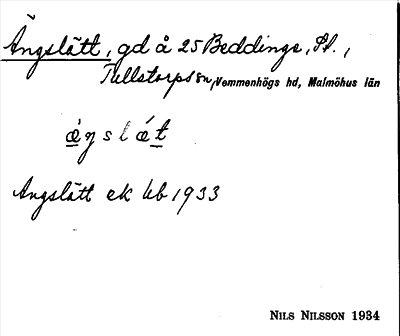 Ängslätt, gd å 25 Beddinge, St.,
Tullstorps sn, Vemmenhögs hd, Malmöhus län
ὰŋslǽt
Ängslätt ek kb 1933
NILS NILSSON 1934